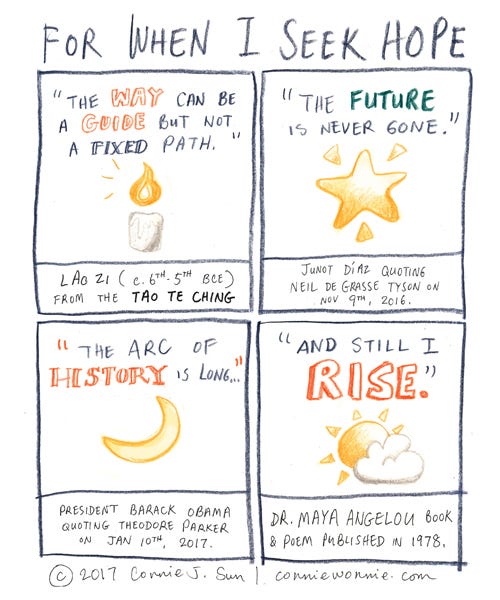 FOR WHEN I SEEK HOPE
"THE WAY CAN BE
A GUIDE BUT NOT
A FIXED PATH."
LAO ZI (c. 6TH-5TH BCE)
FROM THE TAO TE CHING
"THE FUTURE
IS NEVER GONE."
JUNOT DÍAZ QUOTING
NEIL DE GRASSE TYSON ON
NOV 9TH, 2016.
"THE ARC OF
HISTORY IS LONG..."
PRESIDENT BARACK OBAMA
QUOTING THEODORE PARKER
ON JAN 10TH, 2017.
"AND STILL I
RISE."
DR. MAYA ANGELOU BOOK
& POEM PUBLISHED IN 1978.
© 2017 Connie J. Sun | conniewonnie.com